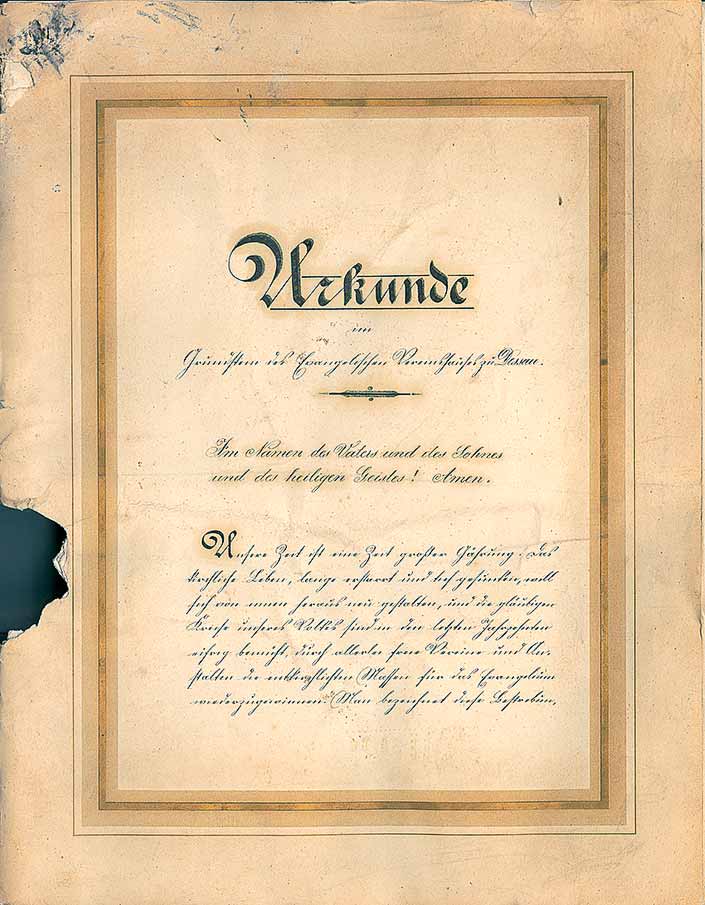 Urkunde
im
Grundstein des Evangelischen Vereinshauses zu Dessau.
Im Namen des Vaters und des Sohnes
und des heiligen Geistes! Amen.
Unsere Zeit ist eine Zeit großer Gährung. Das
kirchliche Leben, lange erstarrt und tief gesunken, will
sich von innen heraus neu gestalten, und die gläubigen
Kreise unseres Volkes sind in den letzten Jahrzehnten
eifrig bemüht, durch allerlei freie Vereine und An-
stalten die entkirchlichten Massen für das Evangelium
wiederzugewinnen. Man bezeichnet diese Bestrebun,